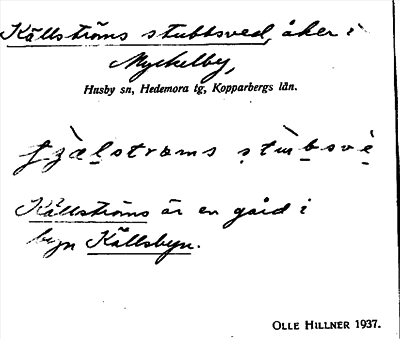 Källströms stubbsved, åker i
Myckelby,
Husby sn, Hedemora tg, Kopparbergs län.
Källströms är en gård i
byn Källsbyn.
OLLE HILLNER 1937.